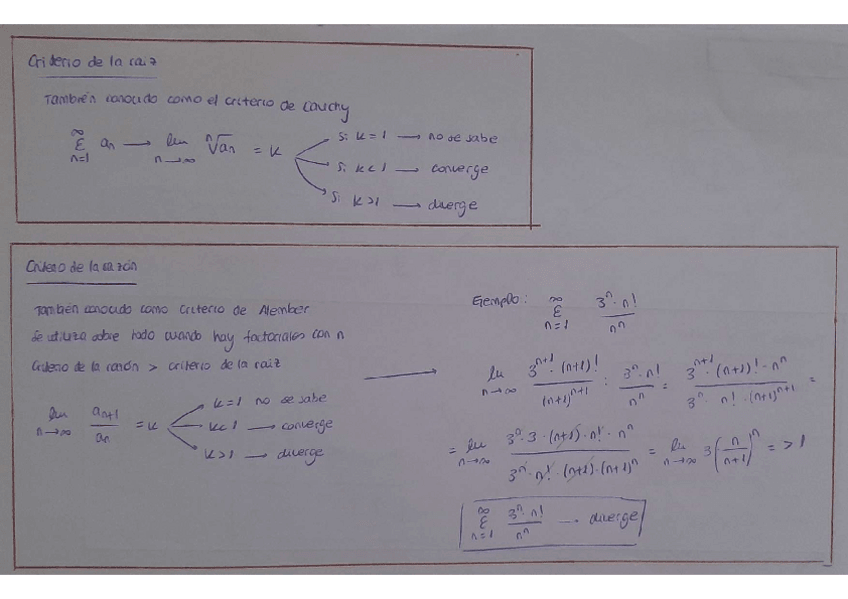 Criterio de la raiz
También conocido como el criterio de Cauchy
∞ Σ n=1 an → lim n→∞ ⁿ√an = k
Si k=1 → no se sabe
Si k<1 → converge
Si k>1 → diverge
Criterio de la razón
También conocido como criterio de Alember
Se utiliza sobre todo cuando hay factoriales con n
Criterio de la razón > criterio de la raiz
lim n→∞ an+1 / an = k
k=1 no se sabe
k<1 → converge
k>1 → diverge
Ejemplo: ∞ Σ n=1 3ⁿ · n! / nⁿ
lim n→∞ 3ⁿ⁺¹ · (n+1)! / (n+1)ⁿ⁺¹ : 3ⁿ · n! / nⁿ = 3ⁿ⁺¹ · (n+1)! · nⁿ / 3ⁿ · n! · (n+1)ⁿ⁺¹ =
= lim n→∞ 3ⁿ · 3 · (n+1) · n! · nⁿ / 3ⁿ · n! · (n+1) · (n+1)ⁿ = lim n→∞ 3 (n / n+1)ⁿ = > 1
∞ Σ n=1 3ⁿ · n! / nⁿ → diverge